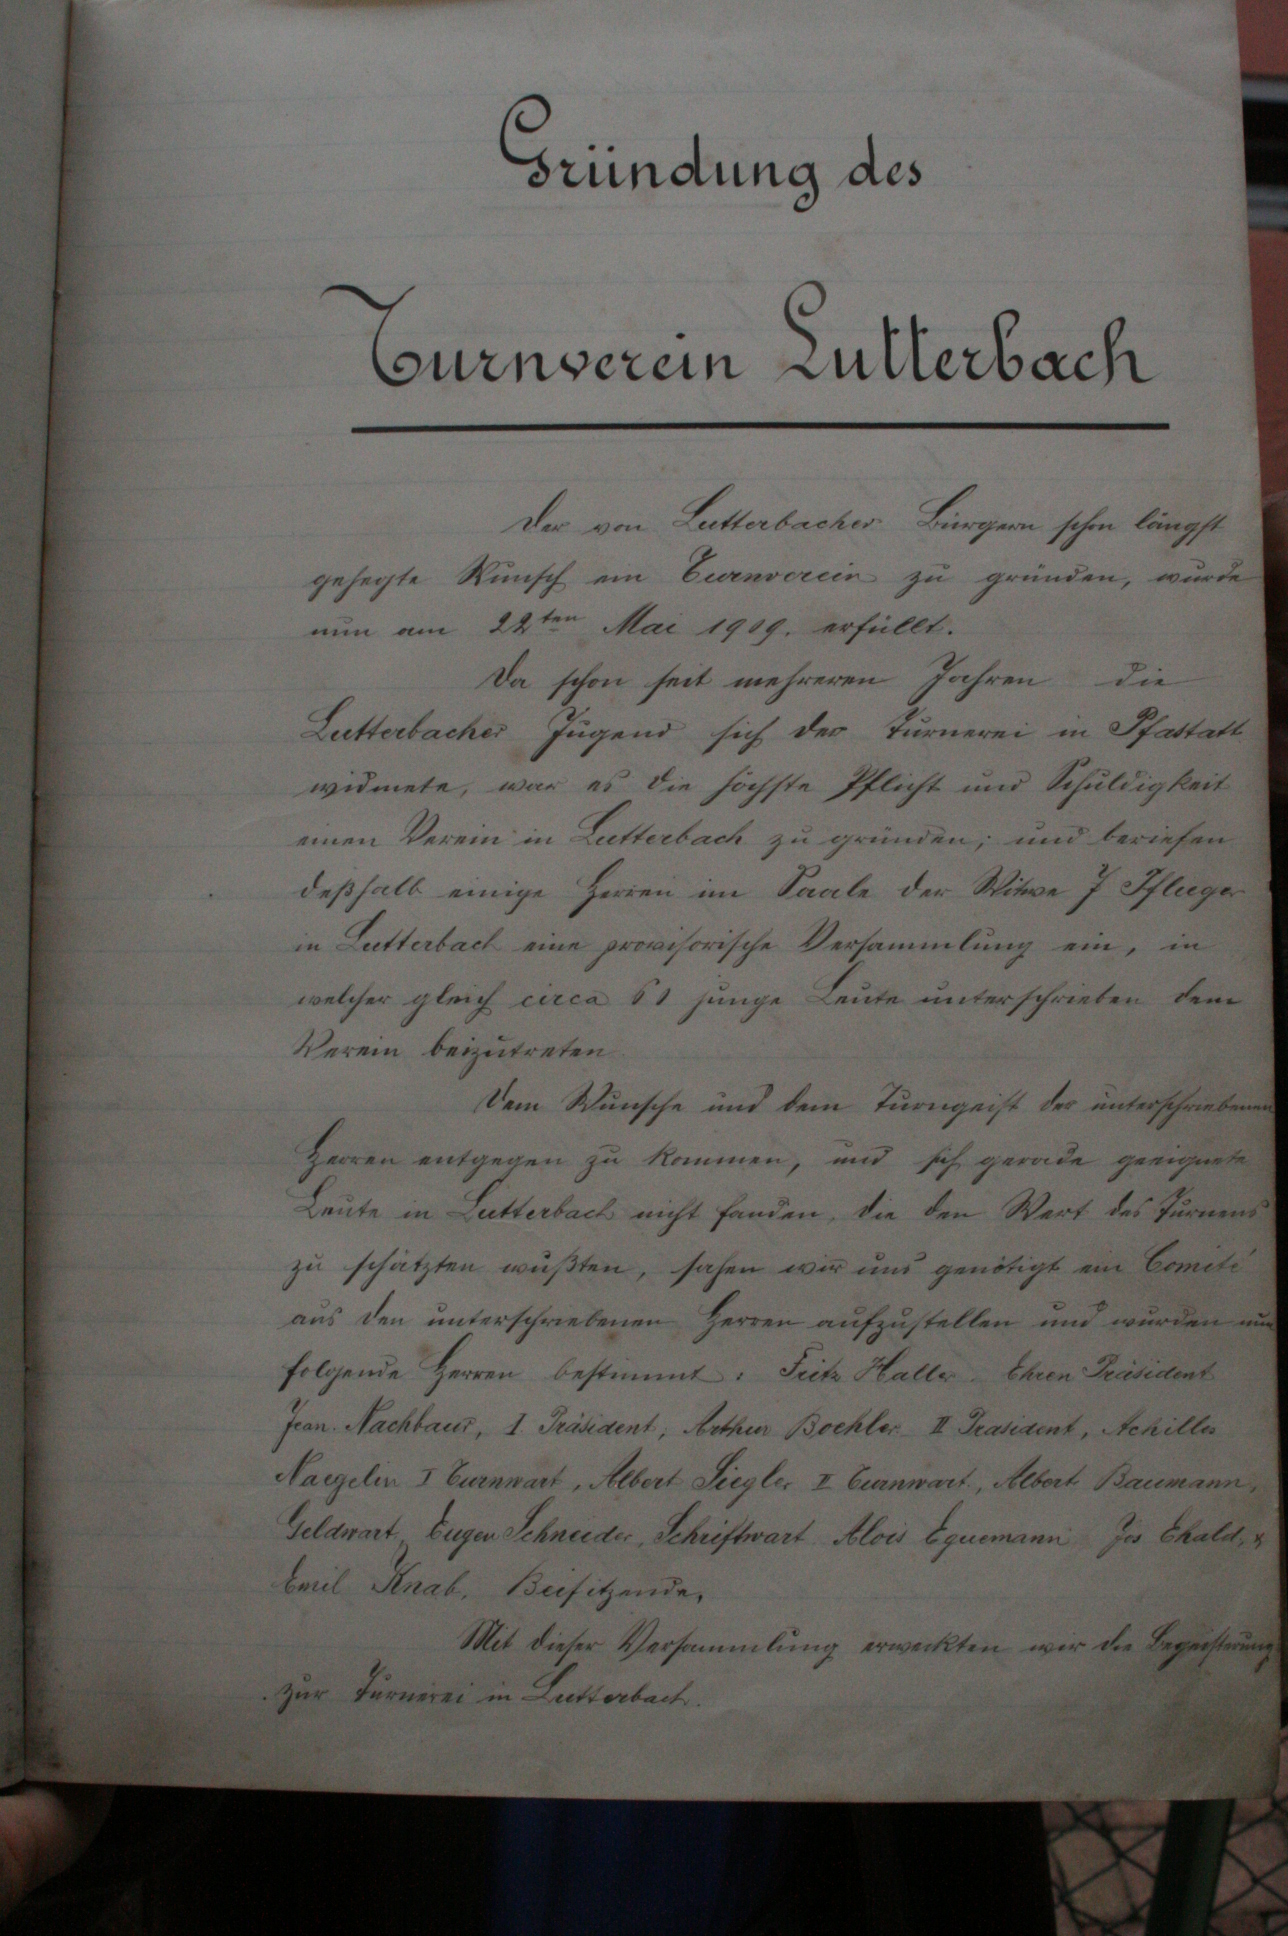 Gründung des
Turnverein Lutterbach
Der von Lutterbacher Bürgern schon längst
gehegte Wunsch ein Turnverein zu gründen, wurde
nun am 22ten Mai 1909. erfüllt.
Da schon seit mehreren Jahren die
Lutterbacher Jugend sich der Turnerei in Pfastatt
widmete, war es die höchste Pflicht und Schuldigkeit
einen Verein in Lutterbach zu gründen; und beriefen
deßhalb einige Herren im Saale der Witwe J Pfluger
in Lutterbach eine provisorische Versammlung ein, in
welcher gleich circa 61 junge Leute unterschrieben dem
Verein beizutreten
Dem Wunsche und dem Turngeist der unterschriebenen
Herren entgegen zu kommen, und sich gerade geeignete
Leute in Lutterbach nicht fanden, die den Wert des Turnens
zu schätzten wußten, sahen wir uns genötigt ein Comité
aus den unterschriebenen Herren aufzustellen und wurden nun
folgende Herren bestimmt: Fritz Haller. Ehren Präsident
Jean. Nachbaur, I Präsident, Arthur Boehler II Prasident, Achilles
Naegelin I Turnwart, Albert Siegler II Turnwart, Albert Baumann,
Geldwart, Eugen Schneider, Schriftwart Alois Eguemann Jos Ehald, &
Emil Knab. Beisitzende.
Mit dieser Versammlung erweckten wir die Begeisterung
zur Turnerei in Lutterbach.